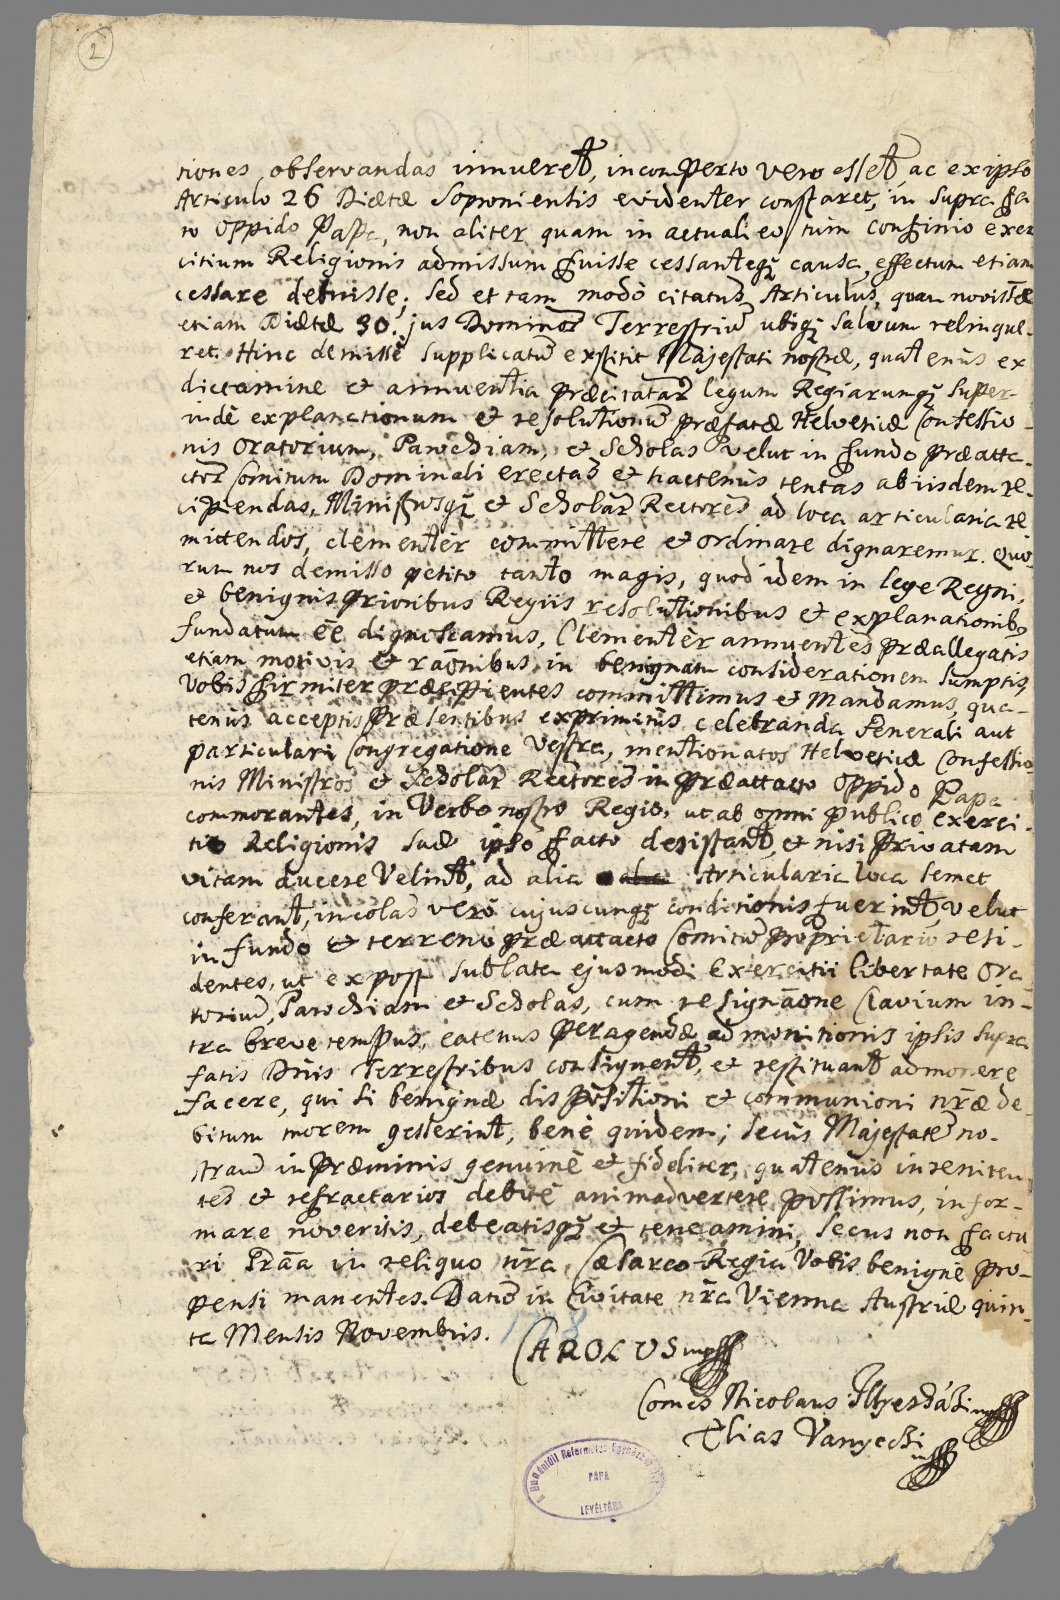 2
tiones observandas innueret, in comperto vero esset, ac ex ipso
Articulo 26 Diætæ Soproniensis evidenter constaret, in supra fa
to oppido Papa, non aliter quam in actuali eotum confinio exer
citium Religionis admissum fuisse cessanteq; causa, effectum etiam
cessare debuisse; sed et tam modò citatus Articulus, quam novissæ
etiam Diætæ 30. jus Dominor Terrestriu ubiq; salvum relinque-
ret. Hinc demissè supplicatu exstitit Majestati nostræ, quatenus ex
dictamine et annuentia præcitatar legum Regiarumq; super-
indè explanationum et resolutionu præfatæ Helveticæ Confessio-
nis Oratorium, Parochiam, et Scholas velut in fundo præatta-
ctor Comitum Dominali erectas et hactenus tentas ab iisdem re-
cipiendas, Ministrosq; et Scholar Rectores ad loca articularia re
mittendos, clementèr committere et ordinare dignaremur. Quo-
rum nos demisso petito tanto magis, quod idem in lege Regni,
et benignis prioribus Regiis resolutionibus et explanationibq
fundatum eē dignoscamus, Clementèr annuentes præallegatis
etiam motivis et raōnibus, in benignam considerationem sumptis,
Vobis firmiter præcipientes committimus et Mandamus, qua-
tenus acceptis præsentibus exprimitus celebranda Generali aut
particulari Congregatione Vestra, mentionatos Helveticæ Confessio-
nis Ministros et Scholar Rectores in præattacto oppido Papa
commorantes, in Verbo nostro Regio, ut ab omni publico exerci-
tio Religionis suæ ipso facto desistant, et nisi privatam
vitam ducere Velint, ad alia Articularia loca semet
conferant, incolas verò cujuscunq; conditionis fuerint, velut
in fundo et terreno præattacto Comitu proprietario resi-
dentes, ut ex post sublata ejusmodi Exercitii libertate Ora
toriu, Parochiam et Scholas, cum resignāone Clavium in-
tra breve tempus, eatenus peragendæ admonitionis ipsis supra
fatis Dnis Terrestribus consignent, et restituant admonere
facere, qui si benignæ dispositioni et communioni nræ de-
bitum morem gesserint, bene quidem; secus Majestate no-
stram in præminis genuinè et fideliter, quatenus in reniten-
tes et refractarios debitè animadvertere possimus, infor-
mare noveritis, debeatisq; et teneamini, secus non factu
ri Grāa in reliquo nra Cæsareo-Regia Vobis benignè pro-
pensi manentes. Datu in Civitate nra Vienna Austriæ quin-
ta Mensis Novembris.
CAROLUS mp
Comes Nicolaus Illyesházi mp
Elias Vanyechi mp
A Dunántúli Református Egyházkerület
PÁPA
LEVÉLTÁRA